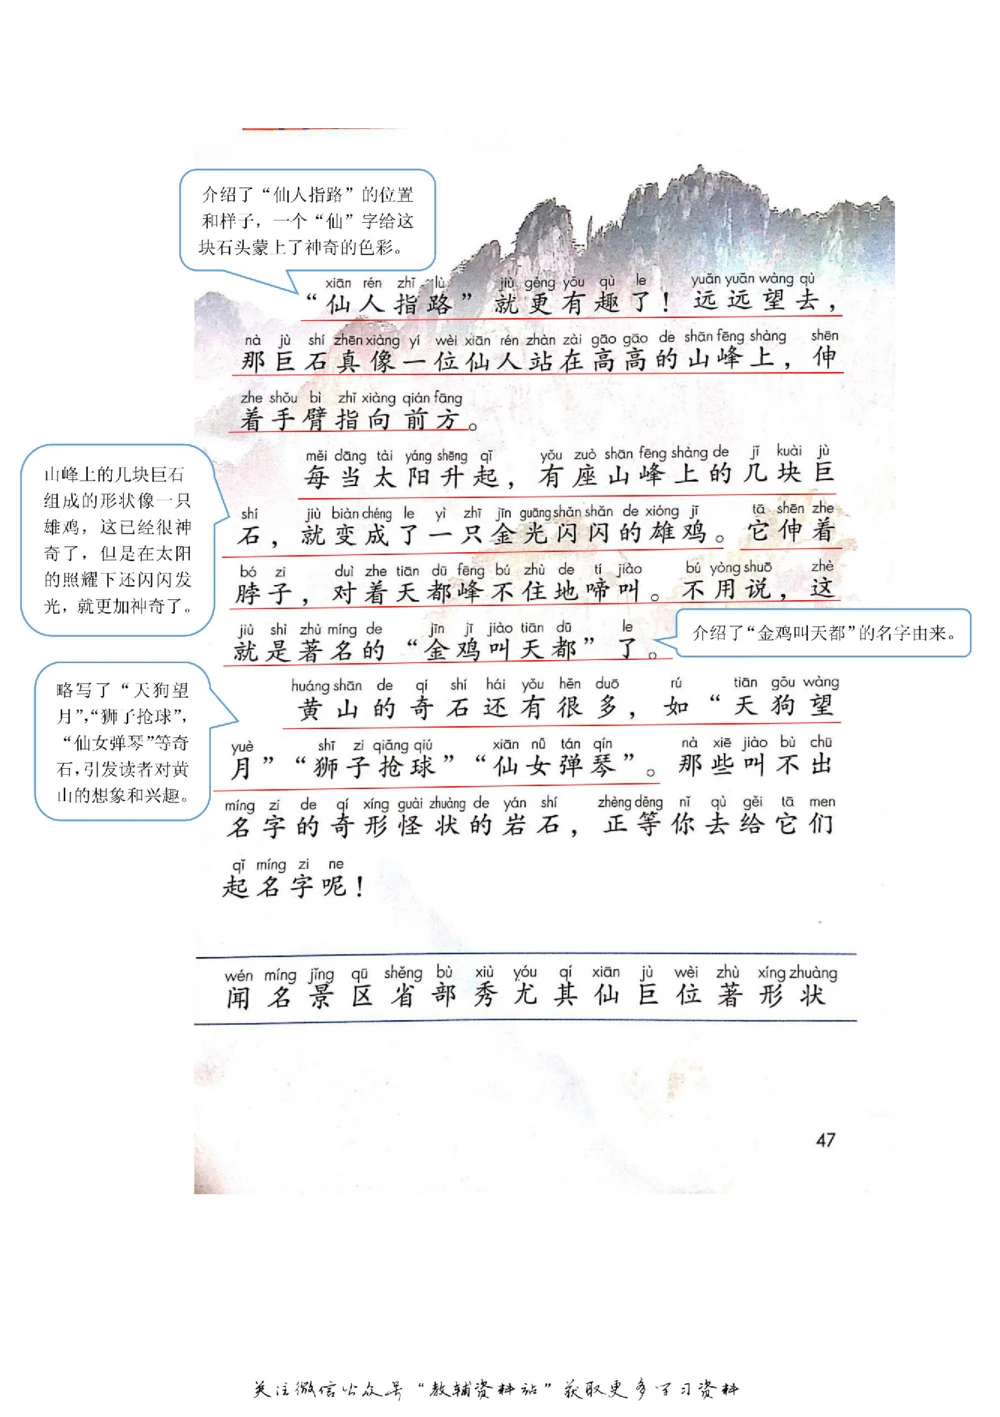 介绍了“仙人指路”的位置
和样子，一个“仙”字给这
块石头蒙上了神奇的色彩。
xiān rén zhǐ lù jiù gèng yǒu qù le yuǎn yuǎn wàng qù
“仙人指路”就更有趣了！远远望去，
nà jù shí zhēn xiàng yí wèi xiān rén zhàn zài gāo gāo de shān fēng shàng shēn
那巨石真像一位仙人站在高高的山峰上，伸
zhe shǒu bì zhǐ xiàng qián fāng
着手臂指向前方。
měi dāng tài yáng shēng qǐ yǒu zuò shān fēng shàng de jǐ kuài jù
每当太阳升起，有座山峰上的几块巨
shí jiù biàn chéng le yì zhī jīn guāng shǎn shǎn de xióng jī tā shēn zhe
石，就变成了一只金光闪闪的雄鸡。它伸着
bó zi duì zhe tiān dū fēng bú zhù de tí jiào bú yòng shuō zhè
脖子，对着天都峰不住地啼叫。不用说，这
jiù shì zhù míng de jīn jī jiào tiān dū le
就是著名的“金鸡叫天都”了。
山峰上的几块巨石
组成的形状像一只
雄鸡，这已经很神
奇了，但是在太阳
的照耀下还闪闪发
光，就更加神奇了。
介绍了“金鸡叫天都”的名字由来。
略写了“天狗望
月”，“狮子抢球”，
“仙女弹琴”等奇
石，引发读者对黄
山的想象和兴趣。
huáng shān de qí shí hái yǒu hěn duō rú tiān gǒu wàng
黄山的奇石还有很多，如“天狗望
yuè shī zi qiǎng qiú xiān nǚ tán qín nà xiē jiào bù chū
月”“狮子抢球”“仙女弹琴”。那些叫不出
míng zi de qí xíng guài zhuàng de yán shí zhèng děng nǐ qù gěi tā men
名字的奇形怪状的岩石，正等你去给它们
qǐ míng zi ne
起名字呢！
wén míng jǐng qū shěng bù xiù yóu qí xiān jù wèi zhù xíng zhuàng
闻名景区省部秀尤其仙巨位著形状
47
关注微信公众号“教辅资料站”获取更多学习资料